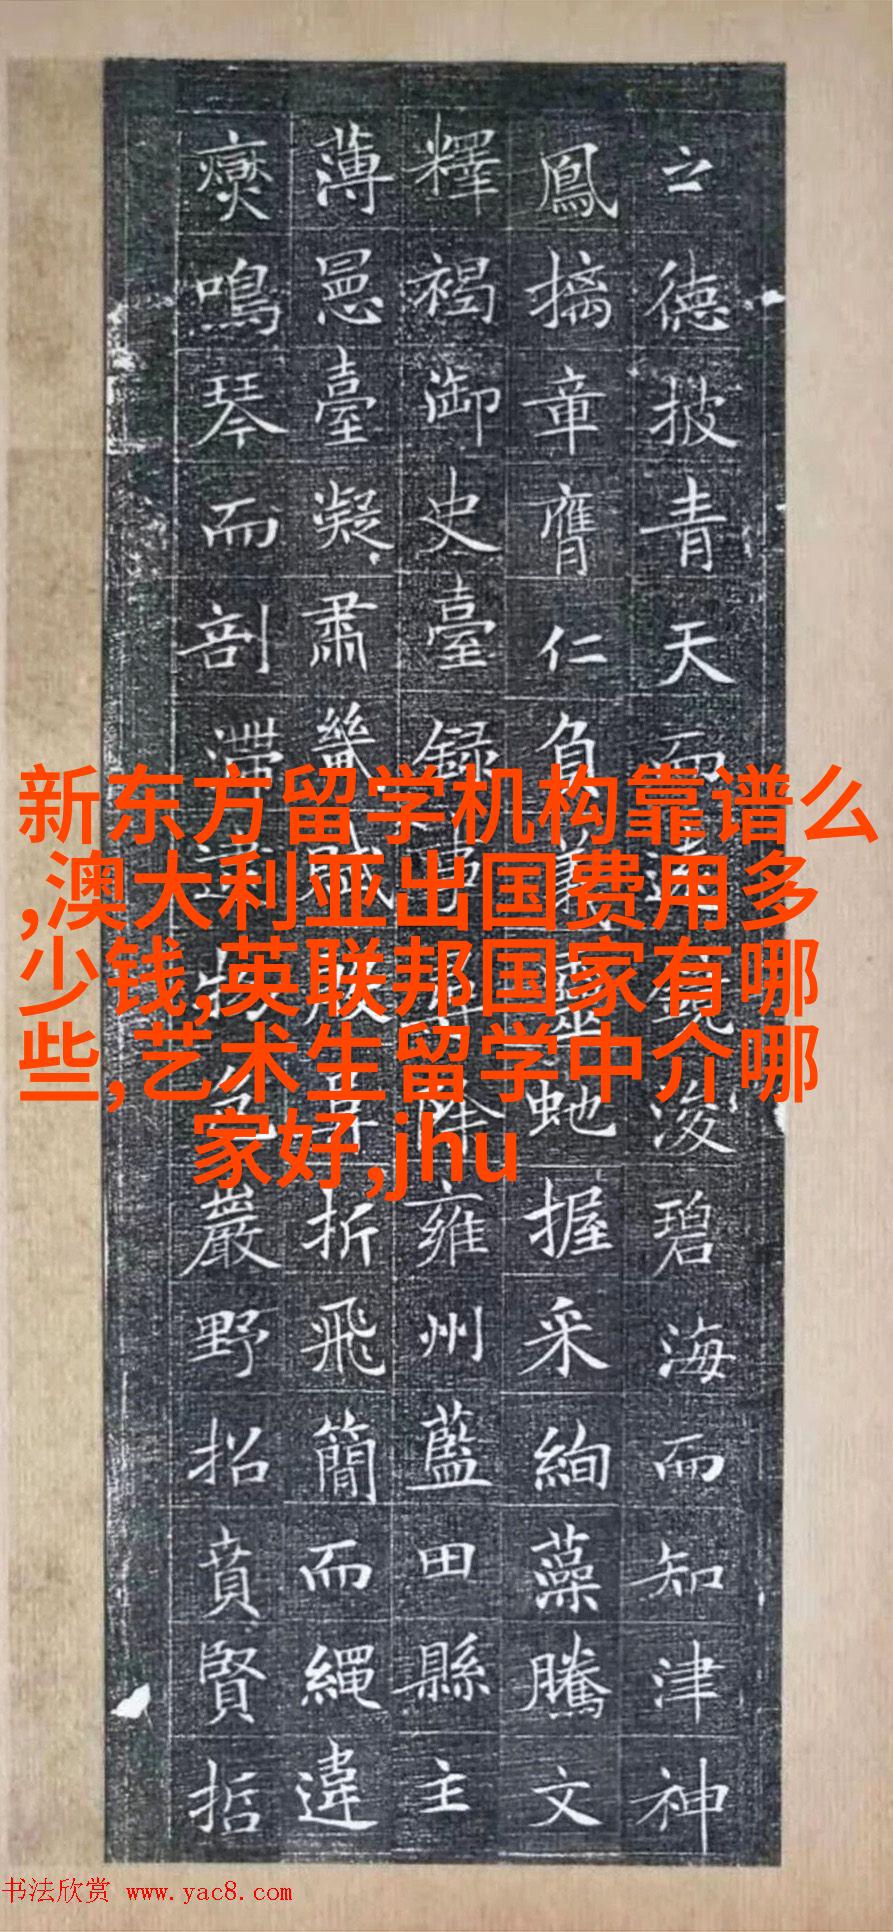 之德披青天而浚碧海而知津神
鳳摛章膺仁負虵握采絢藻騰文
釋褐御史臺録除雍州藍田縣主
薄臺凝肅畿折飛簡而繩違
鳴琴而剖滯物色巖野招賁賢哲
新东方留学机构靠谱么
,澳大利亚出国费用多
少钱,英联邦国家有哪
些,艺术生留学中介哪
家好,jhu
书法欣赏 www.yac8.com